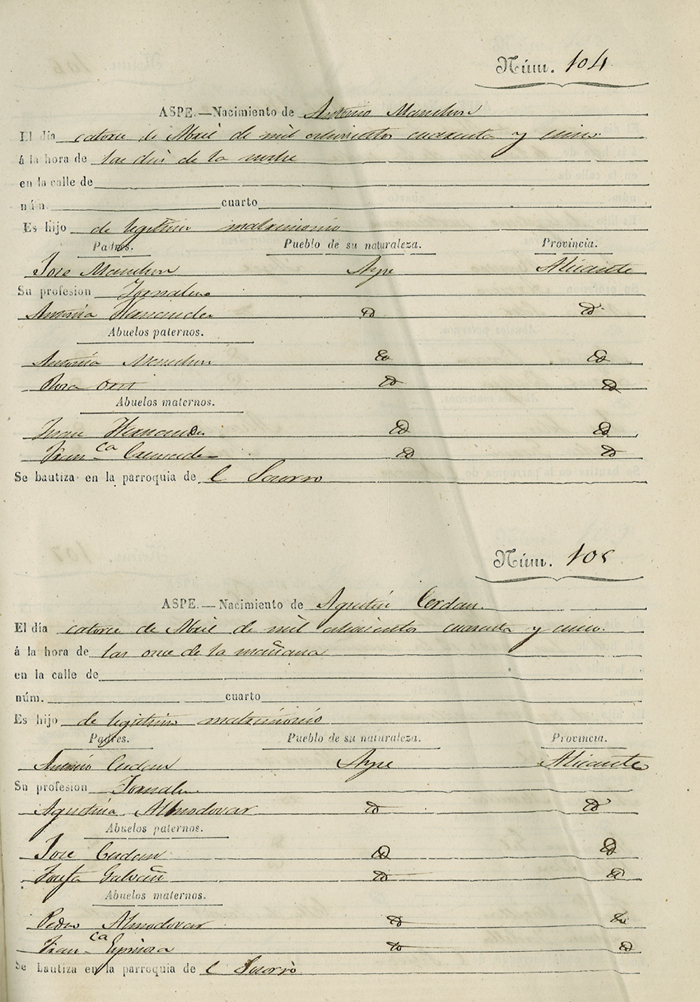 Núm. 104
ASPE.—Nacimiento de Antonio Manchon
El día catorce de Abril de mil ochocientos cuarenta y cinco
á la hora de las dies de la noche
en la calle de
núm. cuarto
Es hijo de legitimo matrimonio
Padres. Pueblo de su naturaleza. Provincia.
Jose Manchon Aspe Alicante
Su profesion Jornalero
Antonia id id
Abuelos paternos.
Antonio Manchon id id
Rosa id id
Abuelos maternos.
id id
Fran.ca id id
Se bautiza en la parroquia de l Socorro
Núm. 105
ASPE.—Nacimiento de Agustin Cerdan.
El día catorce de Abril de mil ochocientos cuarenta y cinco
á la hora de las once de la mañana
en la calle de
núm. cuarto
Es hijo de legitimo matrimonio
Padres. Pueblo de su naturaleza. Provincia.
Antonio Cerdan Aspe Alicante
Su profesion Jornalero
Agustina Almodovar id id
Abuelos paternos.
Jose Cerdan id id
Josefa Galvañ id id
Abuelos maternos.
Pedro Almodovar id id
Fran.ca Espinosa id id
Se bautiza en la parroquia de l Socorro